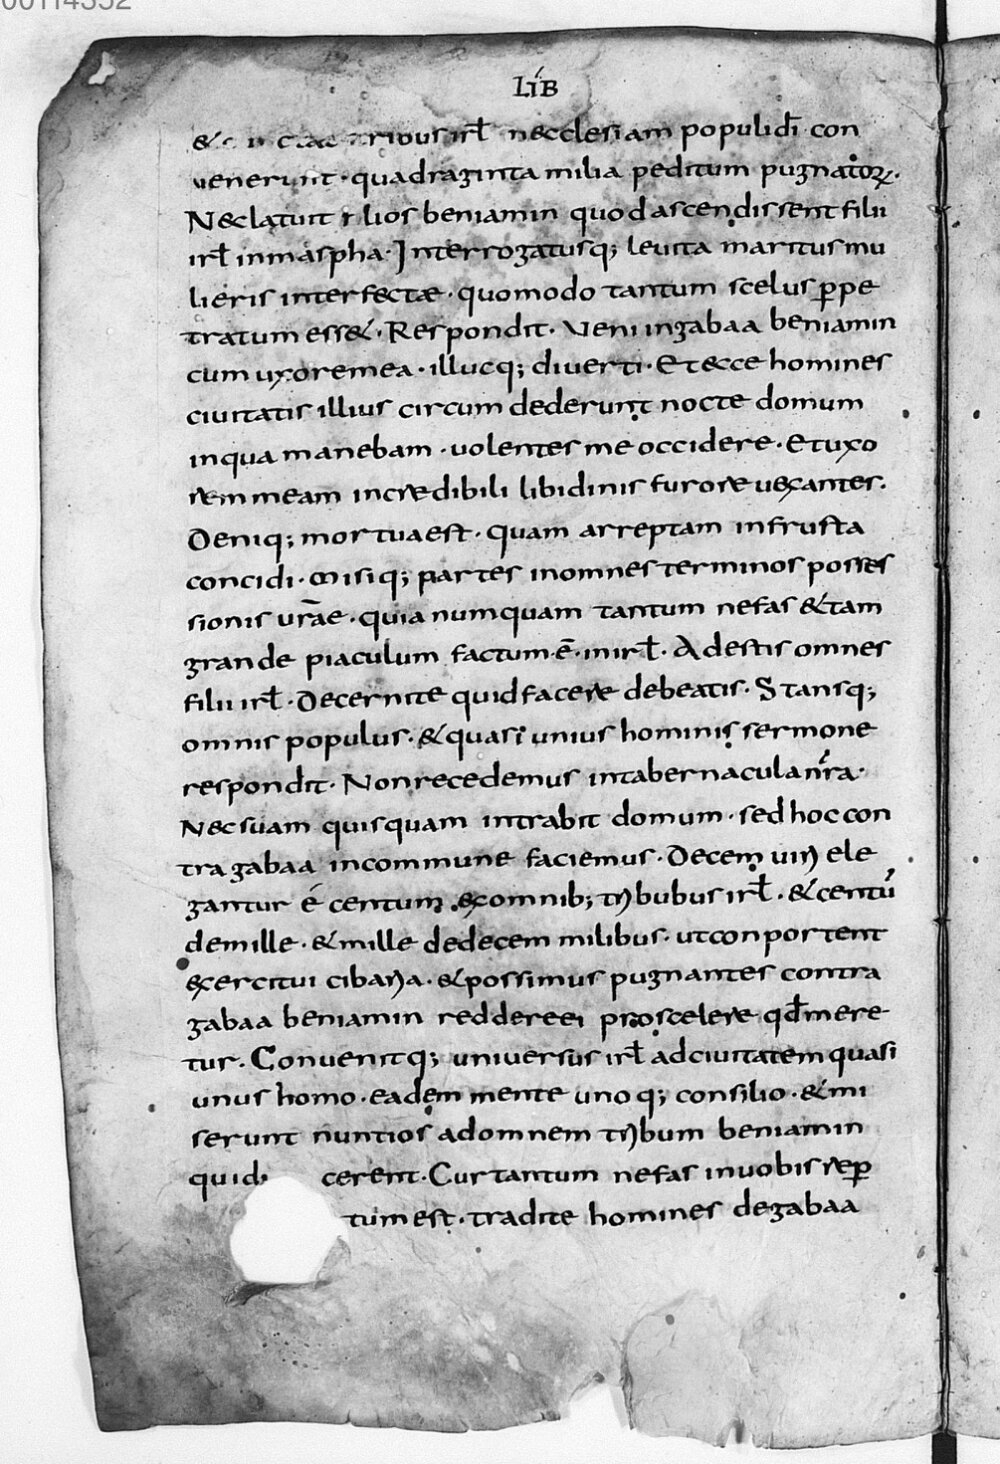 00114352
LIB
& tribus irł in ecclesiam populi dī con
venerunt · quadraginta milia peditum pugnatoꝝ.
Nec latuit filios beniamin quod ascendissent filii
irł in maspha · Interrogatusq; levita maritus mu
lieris interfectæ · quomodo tantum scelus ꝑpe
tratum ess& · Respondit · Veni in gabaa beniamin
cum uxore mea · illucq; diverti · Et ecce homines
civitatis illius circumdederunt nocte domum
in qua manebam · uolentes me occidere · Et uxo
rem meam incredibili libidinis furore uexantes.
Deniq; mortua est · quam arreptam in frusta
concidi · misiq; partes in omnes terminos posses
sionis urāe · quia numquam tantum nefas & tam
grande piaculum factum · ē · in irł · Adestis omnes
filii irł · Decernite quid facere debeatis · Stansq;
omnis populus · & quasi unius hominis sermone
respondit · Non recedemus in tabernacula nr̄a ·
Nec suam quisquam intrabit domum · sed hoc con
tra gabaa in commune faciemus · Decem uiri ele
gantur é centum ex omnib; tribubus irł · & centū
de mille · & mille de decem milibus · ut conportent
exercitui cibaria · & possimus pugnantes contra
gabaa beniamin reddere ei pro scelere qđ mere
tur · Convenitq; universus irł ad civitatem quasi
unus homo · eadem mente unoq; consilio · & mi
serunt nuntios ad omnem tribum beniamin
qui di cerent · Cur tantum nefas in uobis reꝑ
tum est · tradite homines de gabaa